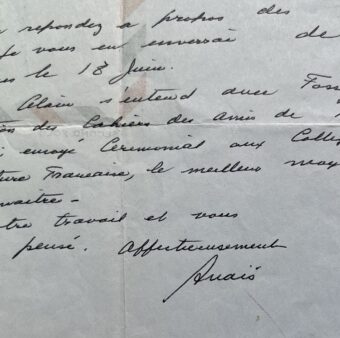 repondez a propos des
je vous en enverrai de
le 18 Juin.
Alain s'entend avec
des Cahiers des amis de
envoyé Ceremonial aux
ture Francaise, le meilleur moy
naitre -
tre travail et vous
pensé. Affectieusement
Anaïs